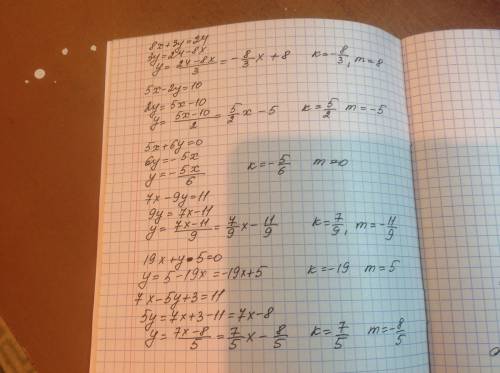 8x+3y=24
3y=24-8x
y=\frac{24-8x}{3}=-\frac{8}{3}x+8 k=-\frac{8}{3}, m=8
5x-2y=10
2y=5x-10
y=\frac{5x-10}{2}=\frac{5}{2}x-5 k=\frac{5}{2} m=-5
5x+6y=0
6y=-5x
y=-\frac{5x}{6} k=-\frac{5}{6} m=0
7x-9y=11
9y=7x-11
y=\frac{7x-11}{9}=\frac{7}{9}x-\frac{11}{9} k=\frac{7}{9}, m=-\frac{11}{9}
19x+y-5=0
y=5-19x=-19x+5 k=-19 m=5
7x-5y+3=11
5y=7x+3-11=7x-8
y=\frac{7x-8}{5}=\frac{7}{5}x-\frac{8}{5} k=\frac{7}{5} m=-\frac{8}{5}